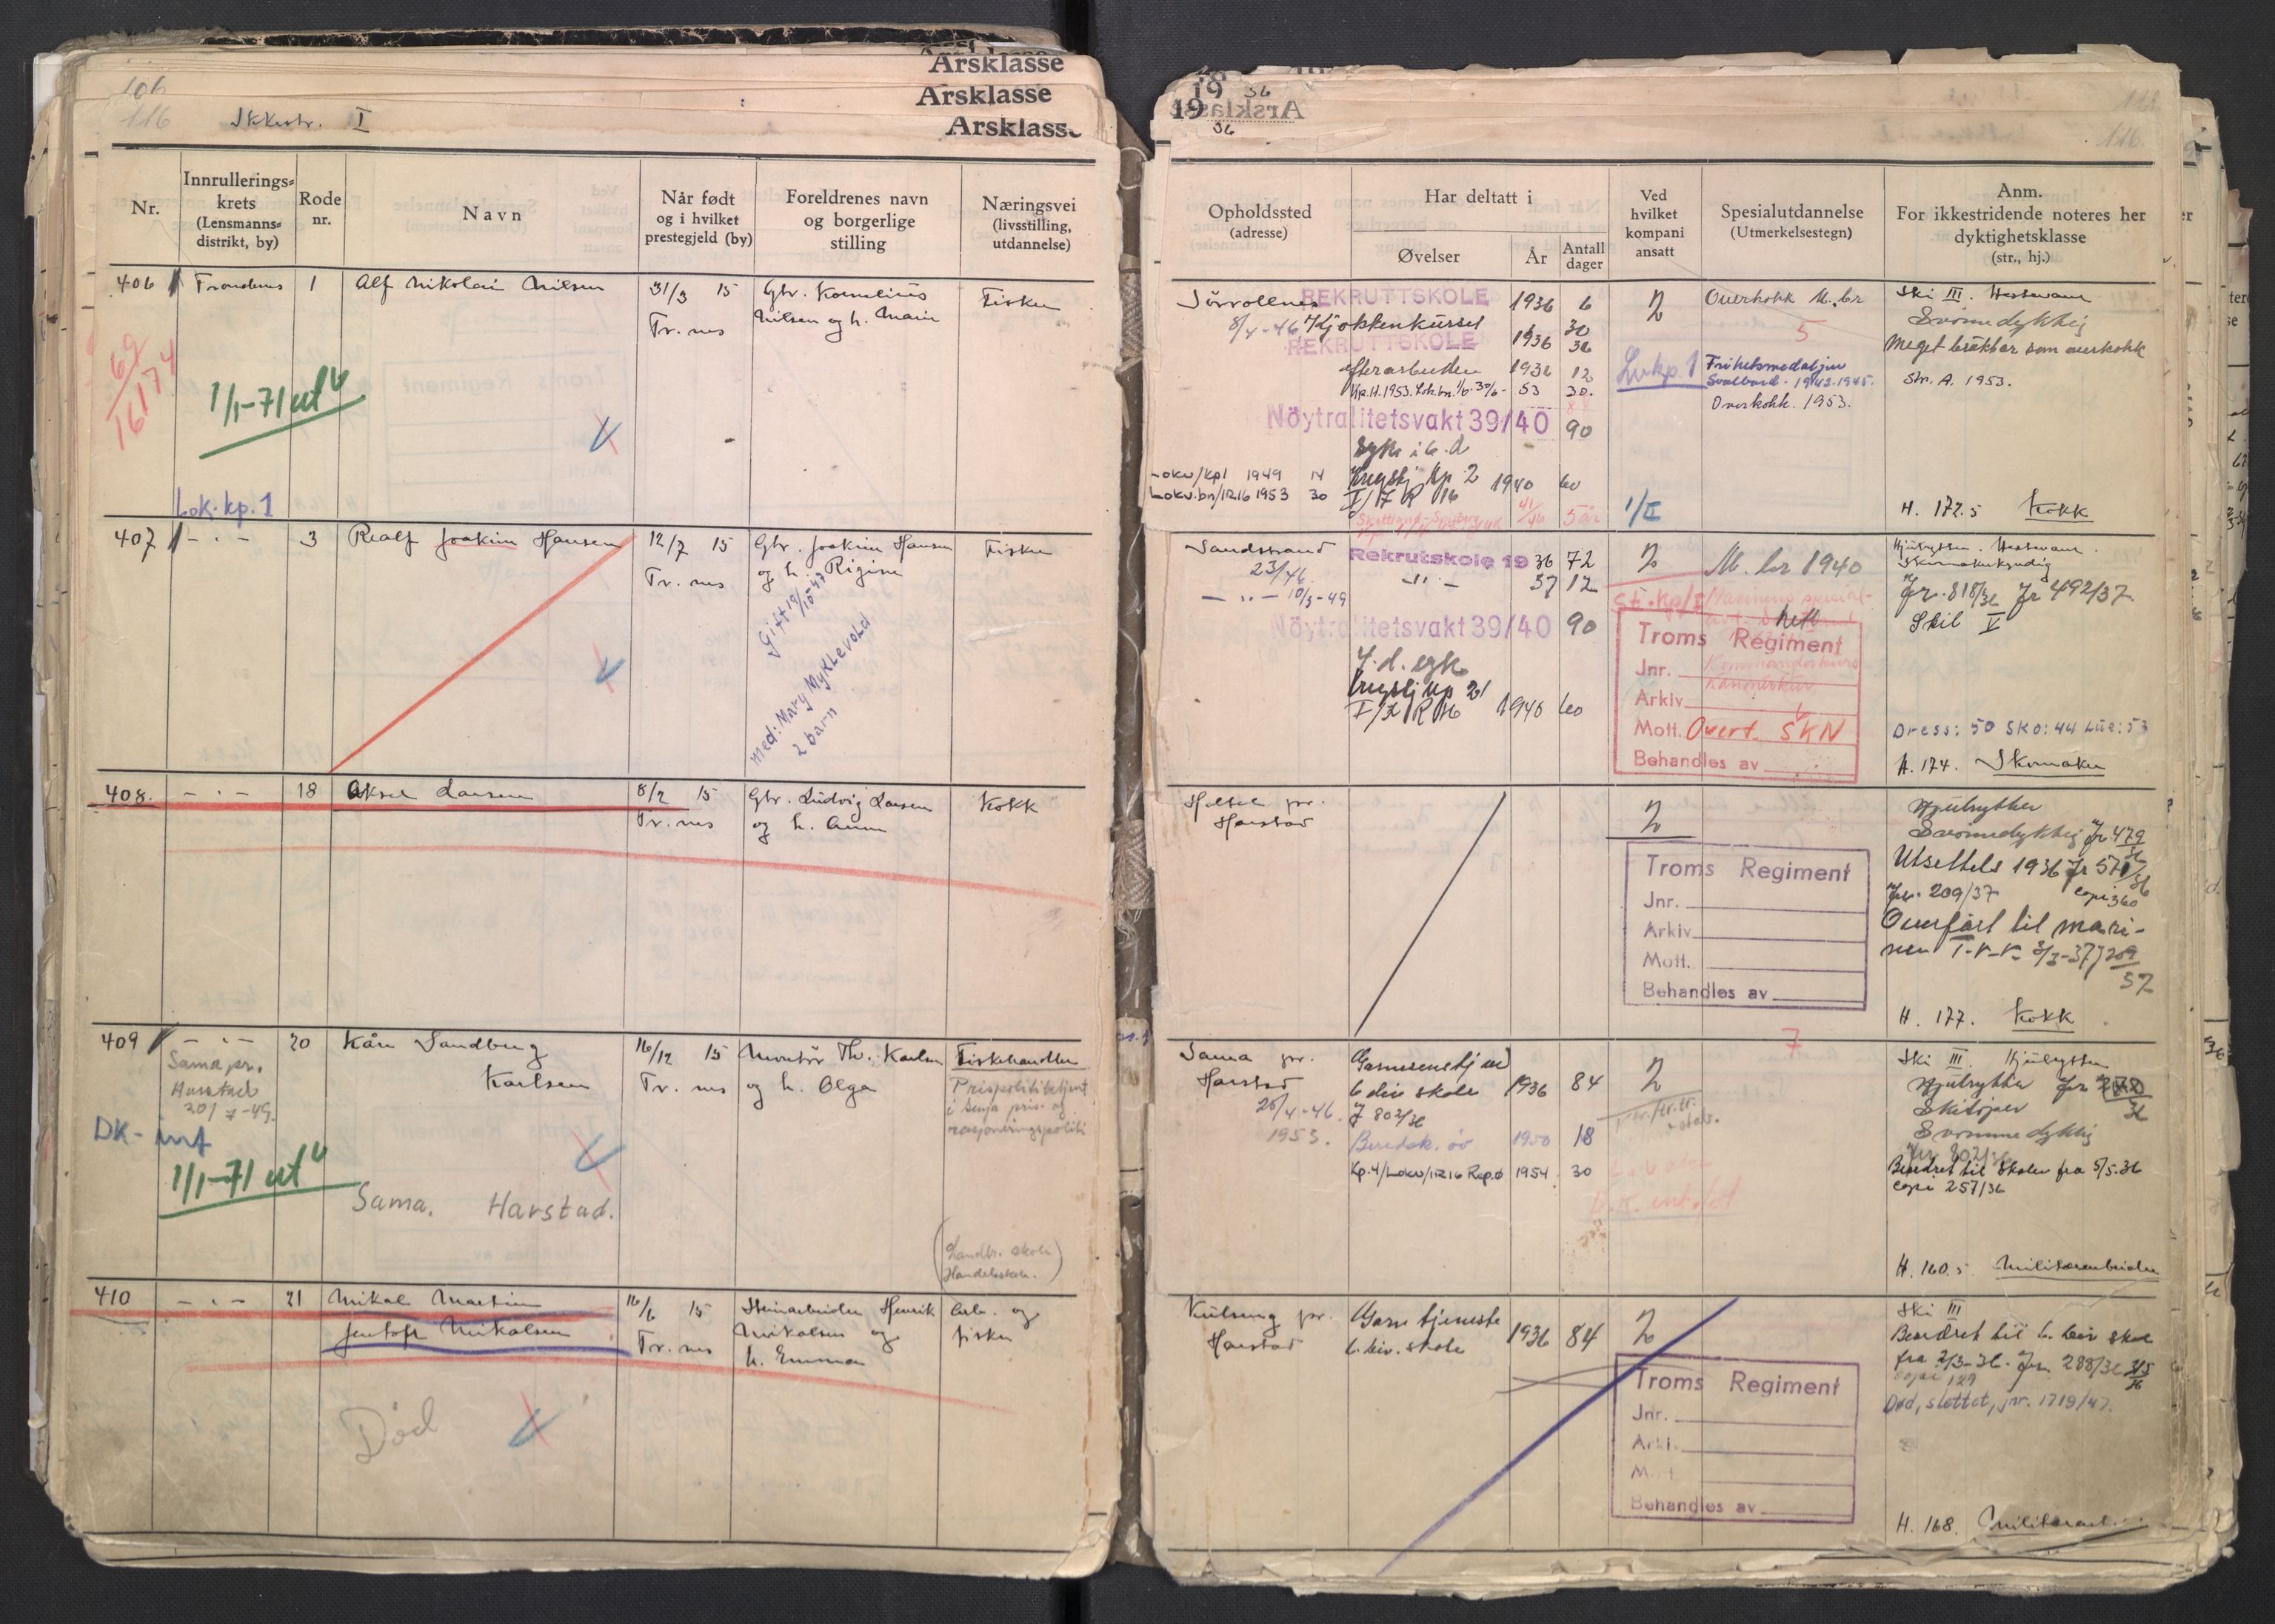 Årsklasse
Årsklasse
Årsklasse
106
116
Ikkestr. I
Nr.
Innrullerings-
krets
(Lensmanns-
distrikt, by)
Rode
nr.
Navn
Når født
og i hvilket
prestegjeld (by)
Foreldrenes navn
og borgerlige
stilling
Næringsvei
(livsstilling,
utdannelse)
406
Trondenes
1
Alf Nikolai Nilsen
31/3 15
Tr. nes
Gbr. Kornelius
Nilsen og h. Marie
Fisker
69
16174
1/1-71 ut
Lok. kp. 1
407
- " -
3
Realf Joakim Hansen
12/7 15
Tr. nes
Gbr. Joakim Hansen
og h. Rigine
Fisker
Gift 19/10-47
med: Mary Myklevold
2 barn
408.
- " -
18
Aksel Larsen
8/2 15
Tr. nes
Gbr. Ludvig Larsen
og h. Anna
Kokk
409
- " -
20
Kåre Sandberg
Karlsen
16/12 15
Tr. nes
Montør Th. Karlsen
og h. Olga
Fiskehandler
Sama pr.
Harstad
20/7-49.
Prispolitibetjent
i Senja pris- og
rasjoneringspoliti
DK-inf
1/1-71 ut
Sama. Harstad.
(Landbr. skole
Handelsskole.)
410
- " -
21
Mikal Martin
Jentoft Mikalsen
16/6 15
Tr. nes
Steinarbeider Henrik
Mikalsen og
h. Emma
Arb. og
fisker
Død
19 36
19
36
116.
Opholdssted
(adresse)
Har deltatt i
Øvelser
År
Antall
dager
Ved
hvilket
kompani
ansatt
Spesialutdannelse
(Utmerkelsestegn)
Anm.
For ikkestridende noteres her
dyktighetsklasse
(str., hj.)
Sørvollnes
8/4-46
REKRUTTSKOLE 1936 6
Kjøkkenkurset 30
REKRUTTSKOLE 1936 36
efterarbeiden 1936 12
53 30.
Nöytralitetsvakt 39/40 90
syk i 6. d
Krigstj Kp 2 1940 60
I/IR 16
Lokv/kp1 1949 14
Lokv.bn/IR16 1953 30
5 år
2
Lvkp. 1
1/I
Overkokk M. br
5
Frihetsmedaljen
Svalbard - 1942-1945.
Overkokk. 1953.
Ski III. Hestevant
Svømmedyktig
Meget brukbar som overkokk
Str. A. 1953.
H. 172.5 Kokk
Sandstrand
23/46.
- " - 10/3-49
Rekrutskole 19 36 72
- " - 37 12
Nöytralitetsvakt 39/40 90
4. d. syk
Krigstj Kp 2
I/IR 16 1940 60
2
St. kp/I
M. br 1940
Troms Regiment
Jnr.
Arkiv
Mott. Overt. SKN
Behandles av
Hjulrytter. Hestevant.
Skomakerkyndig
Jr. 818/36 Jr 492/37
Skil V
Dress: 50 Sko: 44 Lue: 53
H. 174. Skomaker
Harstad
2
Troms Regiment
Jnr.
Arkiv
Mott.
Behandles av
Hjulrytter
Svømmedyktig Jr 479/36
Utsettelse 1936 Jr 571/36
Jr. 209/37 copi 360
Overført til mari-
nen
H. 177. Kokk
Sama pr.
Harstad
26/4-46.
1953.
Garnisonstj ved
6 div skole 1936 84
J 802/36
Beredsk. öv 1950 18
Kp.4/Lokv/IR16 Rep.ø 1954 30
2
7
Ski III Hjulrytter
Hjulrytter
Skiløper
Svømmedyktig
Jr 802/36
Beordret til Skolen fra 5/5.36
copi 257/36
H. 160.5 Militærarbeider
Kilseng pr.
Harstad
Garn tjeneste
6. div. skole 1936 84
2
Troms Regiment
Jnr.
Arkiv
Mott.
Behandles av
Ski III
Beordret til 6. div skole
fra 2/3-36. Jr. 288/36
copi 129
Død, slettet, jnr. 1719/47.
H. 168. Militærarb.